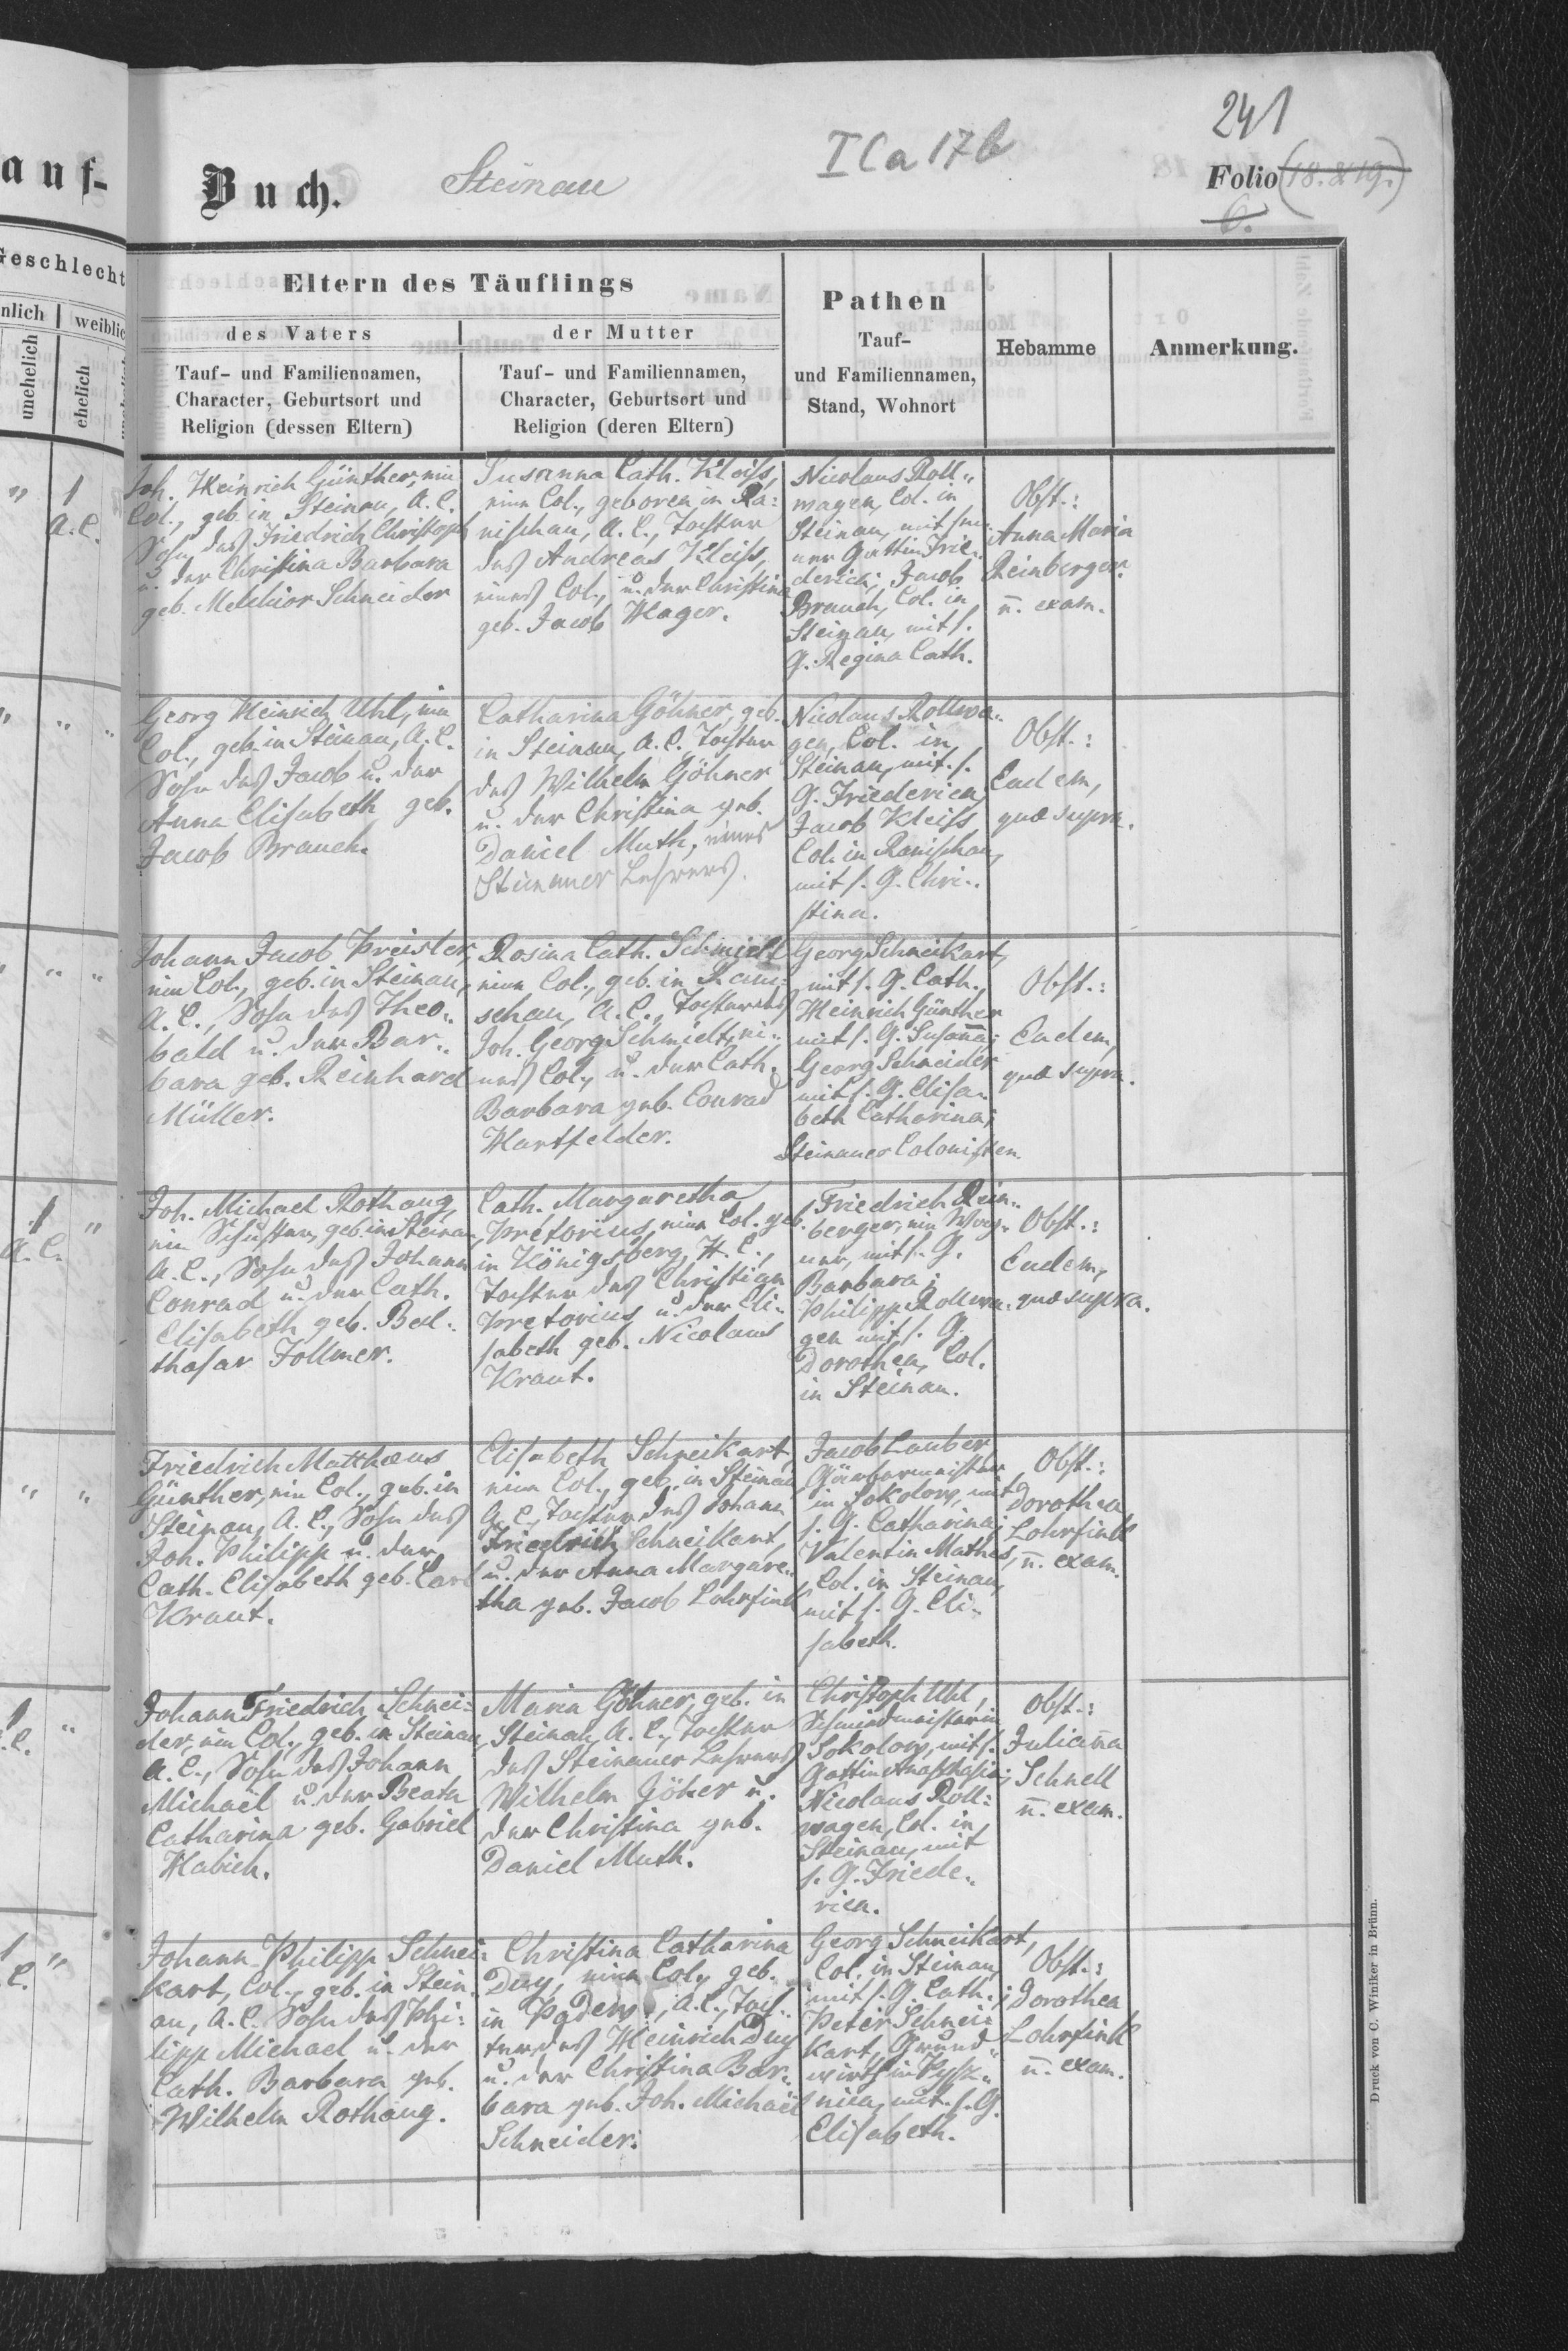 241
I C a 17 b
auf-
Buch.
Steinau
Folio (18. & 19.)
6.
Geschlecht
nlich
weiblic
unehelich
ehelich
Eltern des Täuflings
des Vaters
der Mutter
Tauf- und Familiennamen,
Character, Geburtsort und
Religion (dessen Eltern)
Tauf- und Familiennamen,
Character, Geburtsort und
Religion (deren Eltern)
Pathen
Tauf-
und Familiennamen,
Stand, Wohnort
Hebamme
Anmerkung.
" 1
A. C.
Joh. Heinrich Günther, ein
Col., geb. in Steinau, A. C.
Sohn des Friedrich Christoph
u. der Christina Barbara
geb. Melchior Schneider
Susanna Cath. Kleiss,
eine Col., geboren in Ra=
nischau, A. C., Tochter
des Andreas Kleiss,
eines Col., u. der Christina
geb. Jacob Hager.
Nicolaus Roll"
wagen, Col. in
Steinau, mit sei-
ner Gattin Frie-
derica; Jacob
Brauch, Col. in
Steinau, mit s.
G. Regina Cath.
Obst.:
Anna Maria
Reinberger
n. exam.
" " "
Georg Heinrich Uhl, ein
Col., geb. in Steinau, A. C.
Sohn des Jacob u. der
Anna Elisabeth geb.
Jacob Brauch.
Catharina Göhner, geb.
in Steinau, A. C. Tochter
des Wilhelm Göhner
u. der Christina geb.
Daniel Muth, eines
Steinauer Lehrers.
Nicolaus Rollwa-
gen, Col. in
Steinau, mit s.
G. Friederica,
Jacob Kleiss
Col. in Ranischau,
mit s. G. Chri-
stina.
Obst.:
Eadem,
quae supra.
" " "
Johann Jacob Preisler,
ein Col., geb. in Steinau,
A. C., Sohn des Theo-
bald u. der Bar-
bara geb. Reinhard
Müller.
Rosina Cath. Schmidt
eine Col., geb. in Rani-
schau, A. C., Tochter des
Joh. Georg Schmidt, ei-
nes Col., u. der Cath.
Barbara geb. Conrad
Hartfelder.
Georg Schneikart,
mit s. G. Cath.,
Heinrich Günther
mit s. G. Susanna;
Georg Schneider
mit s. G. Elisa-
beth Catharina;
Steinauer Colonisten.
Obst.:
Eadem,
quae supra.
1 "
A. C.
Joh. Michael Rothaug,
ein Schuster, geb. in Steinau,
A. C., Sohn des Johann
Conrad u. der Cath.
Elisabeth geb. Bal-
thasar Follmer.
Cath. Margaretha
Pretorius, eine Col. geb.
in Königsberg, H. C.,
Tochter des Christian
Pretorius u. der Eli-
sabeth geb. Nicolaus
Kraut.
Friedrich Rein-
berger, ein Wag-
ner, mit s. G.
Barbara;
Philipp Rollwa-
gen mit s. G.
Dorothea, Col.
in Steinau.
Obst.:
Eadem,
quae supra.
" "
Friedrich Matthaeus
Günther, ein Col., geb. in
Steinau, A. C., Sohn des
Joh. Philipp u. der
Cath. Elisabeth geb. Carl
Kraut.
Elisabeth Schneikart,
eine Col., geb. in Steinau
A. C., Tochter des Johann
Friedrich Schneikart,
u. der Anna Margare-
tha geb. Jacob Lohrfink
Jacob Lauber
Gärbermeister
in Sokolow, mit
s. G. Catharina;
Valentin Mathes,
Col. in Steinau,
mit s. G. Eli-
sabeth.
Obst.:
Dorothea
Lohrfink
n. exam.
1 "
A. C.
Johann Friedrich Schnei=
der, ein Col., geb. in Steinau,
A. C., Sohn des Johann
Michaël u. der Beata
Catharina geb. Gabriel
Habich.
Maria Göhner, geb. in
Steinau, A. C., Tochter
des Steinauer Lehrers
Wilhelm Göhner u.
der Christina geb.
Daniel Muth.
Christoph Uhl,
Schmiedmeister in
Sokolow, mit s.
Gattin Anasthasia;
Nicolaus Roll=
wagen, Col. in
Steinau, mit
s. G. Friede-
rica.
Obst.:
Julianna
Schnell
n. exam.
1 "
C.
Johann Philipp Schnei=
kart, Col., geb. in Stein-
au, A. C. Sohn des Phi=
lipp Michael u. der
Cath. Barbara geb.
Wilhelm Rothaug.
Christina Catharina
Duy, eine Col., geb.
in Padew, A. C., Toch-
ter des Heinrich Duy
u. der Christina Bar-
bara geb. Joh. Michael
Schneider.
Georg Schneikart,
Col. in Steinau,
mit s. G. Cath.;
Peter Schnei=
kart, Grund-
wirth in
mit s. G.
Elisabeth.
Obst.:
Dorothea
Lohrfink
n. exam.
Druck von C. Winiker in Brünn.